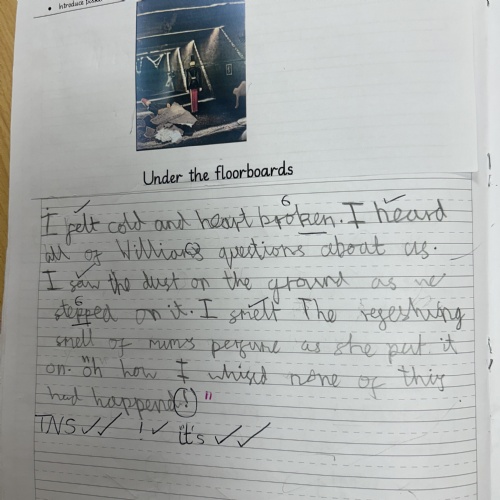 • Introduce
Under the floorboards
6
I felt cold and heart broken. I heard
all of Williams questions about us.
I saw the dust on the ground as we
6
stepped on it. I smelt The regeshing
smell of mums perfume as she put it
on. "oh how I whised none of this
had happend!"
TNS ✓✓ !✓ it's ✓✓